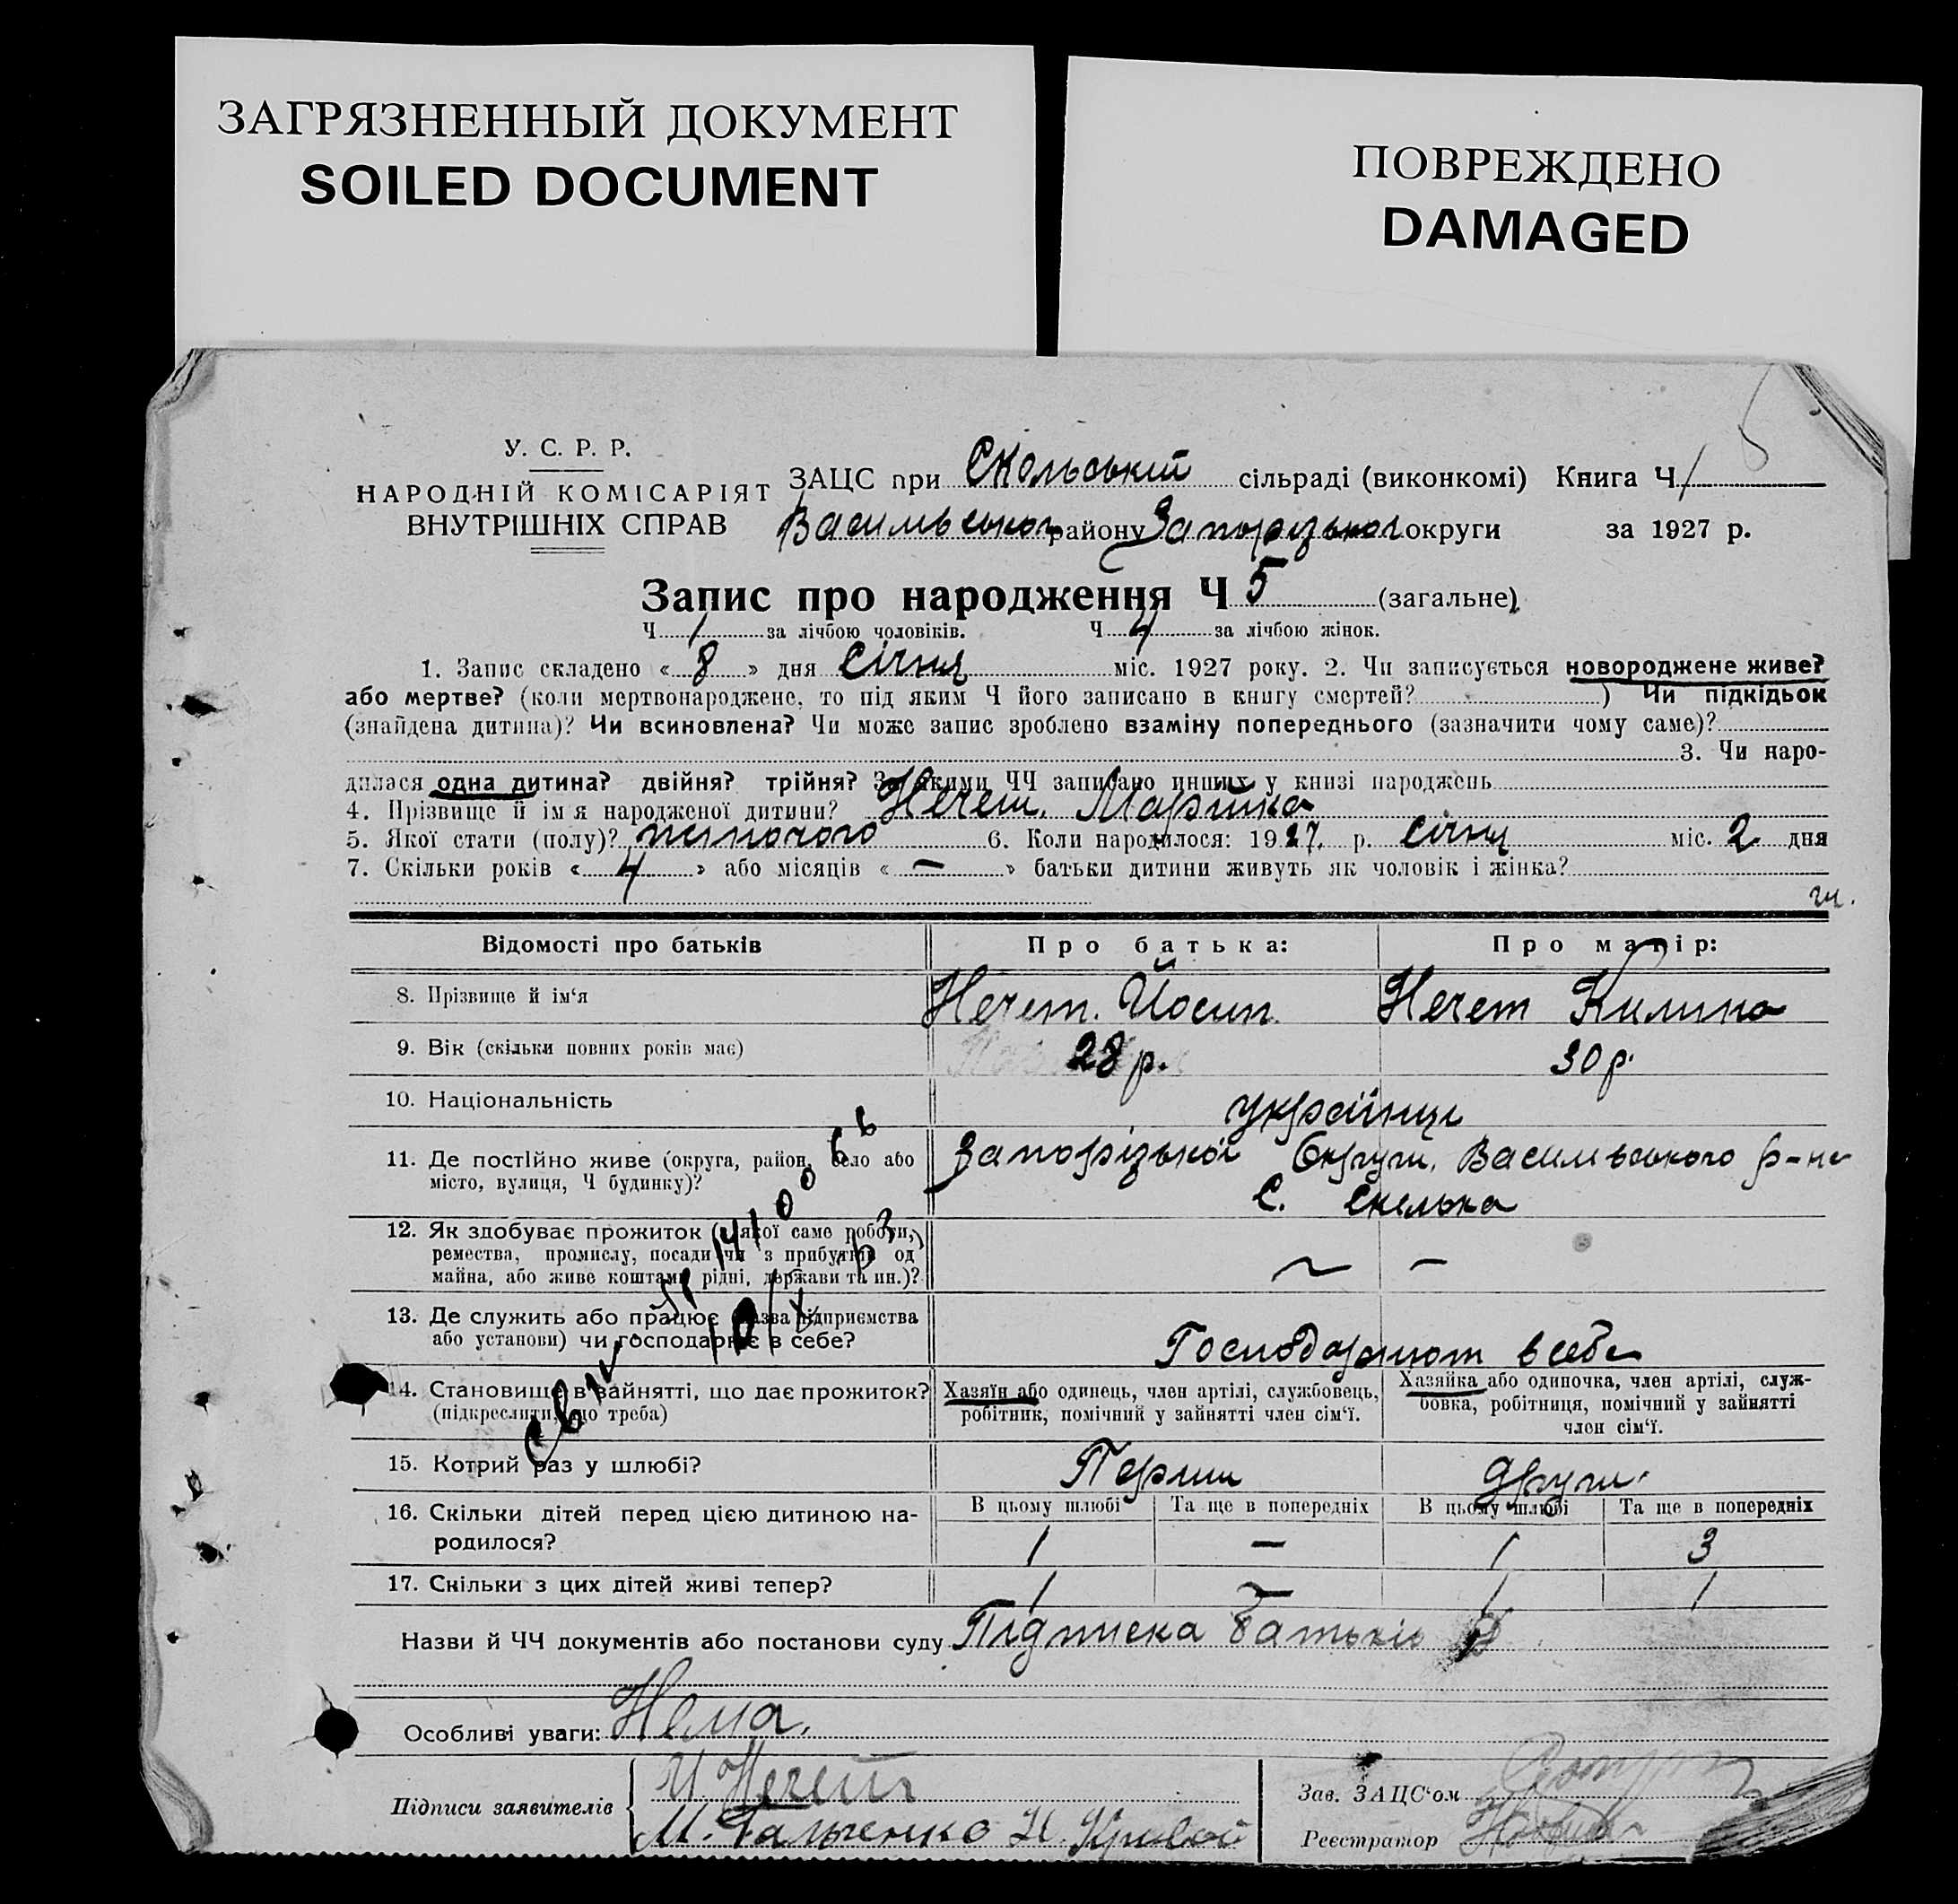 ЗАГРЯЗНЕННЫЙ ДОКУМЕНТ
SOILED DOCUMENT
ПОВРЕЖДЕНО
DAMAGED
5
У. С. Р. Р.
НАРОДНІЙ КОМІСАРІЯТ
ВНУТРІШНІХ СПРАВ
ЗАЦС при Скельській сільраді (виконкомі) Книга Ч 1
Васильвської району Запорізької округи за 1927 р.
Запис про народження Ч 5 (загальне)
Ч 1 за лічбою чоловіків. Ч 4 за лічбою жінок.
1. Запис складено « 8 » дня січня міс. 1927 року. 2. Чи записується новороджене живе?
або мертве? (коли мертвонароджене, то під яким Ч його записано в книгу смертей? ) Чи підкідьок
(знайдена дитина)? Чи всиновлена? Чи може запис зроблено взаміну попереднього (зазначити чому саме)?
3. Чи наро-
дилася одна дитина? двійня? трійня? За якими ЧЧ записано инших у книзі народжень
4. Прізвище й ім я народженої дитини? Нечет, Марійка
5. Якої стати (полу)? жіночого 6. Коли народилося: 1927. р. січня міс. 2 дня
7. Скільки років « 4 » або місяців « — » батьки дитини живуть як чоловік і жінка?
Відомості про батьків Про батька: Про матір:
8. Прізвище й ім‘я Нечет. Йосип. Нечет Килина
9. Вік (скільки повних років має) 28 р. 30 р.
10. Національність українці
11. Де постійно живе (округа, район, село або
місто, вулиця, Ч будинку)?
Запорізької Округи, Васильвського р-на
с. Скелька
12. Як здобуває прожиток (з якої саме роботи,
ремества, промислу, посади чи з прибутків од
майна, або живе коштами рідні, держави та ин.)?
— —
13. Де служить або працює (назва підприємства
або установи) чи господарює в себе?
Господарюют в себе
14. Становище в зайнятті, що дає прожиток?
(підкреслити, що треба)
Хазяїн або одинець, член артілі, службовець,
робітник, помічний у зайнятті член сім‘ї.
Хазяйка або одиночка, член артілі, служ-
бовка, робітниця, помічний у зайнятті
член сім‘ї.
15. Котрий раз у шлюбі? Перши други.
16. Скільки дітей перед цією дитиною на-
родилося?
В цьому шлюбі Та ще в попередніх В цьому шлюбі Та ще в попередніх
1 — 1 3
17. Скільки з цих дітей живі тепер? 1 — 1 1
Назви й ЧЧ документів або постанови суду Підписка батьків
Особливі уваги: Нема.
Підписи заявителів
И. Нечет
М. Гальченко Н. Кривой
Зав. ЗАЦС‘ом
Реєстратор